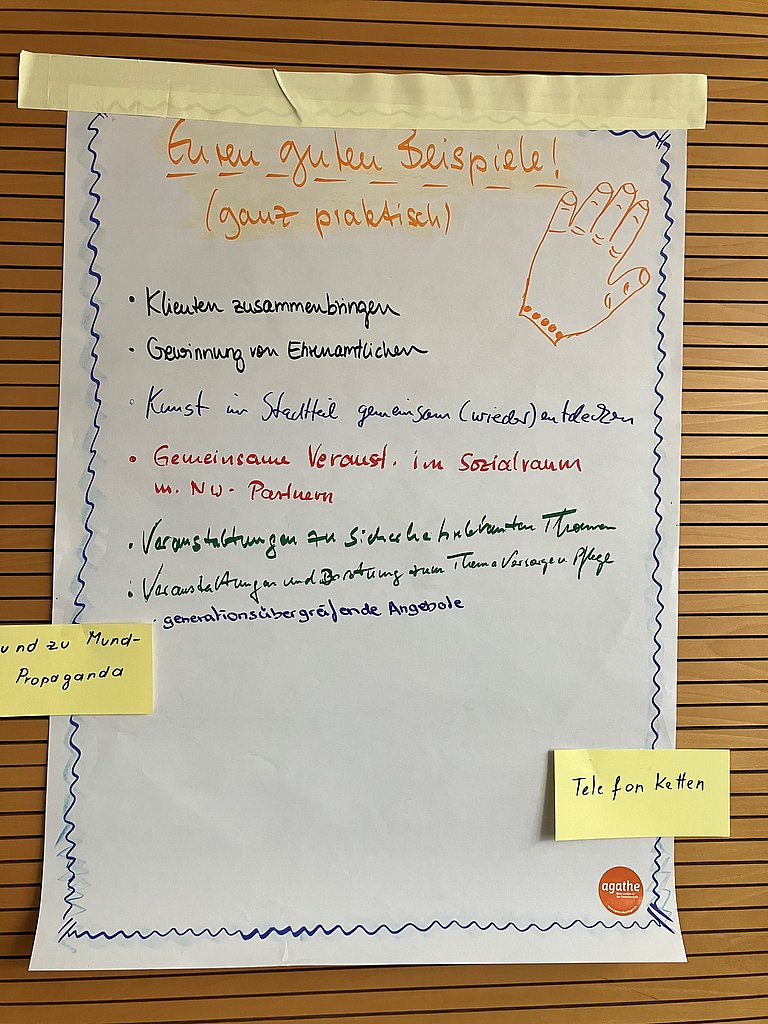 Euren guten Beispiele!
(ganz praktisch)
• Klienten zusammenbringen
• Gewinnung von Ehrenamtlichen
• Kunst im Stadtteil gemeinsam (wieder)entdecken
• Gemeinsame Veranst. im Sozialraum
m. NW-Partnern
• Veranstaltungen zu sicherheitsrelevanten Themen
• Veranstaltungen und Beratung zum Thema Vorsorge Pflege
• generationsübergreifende Angebote
und zu Mund-
Propaganda
Telefon Ketten
agathe